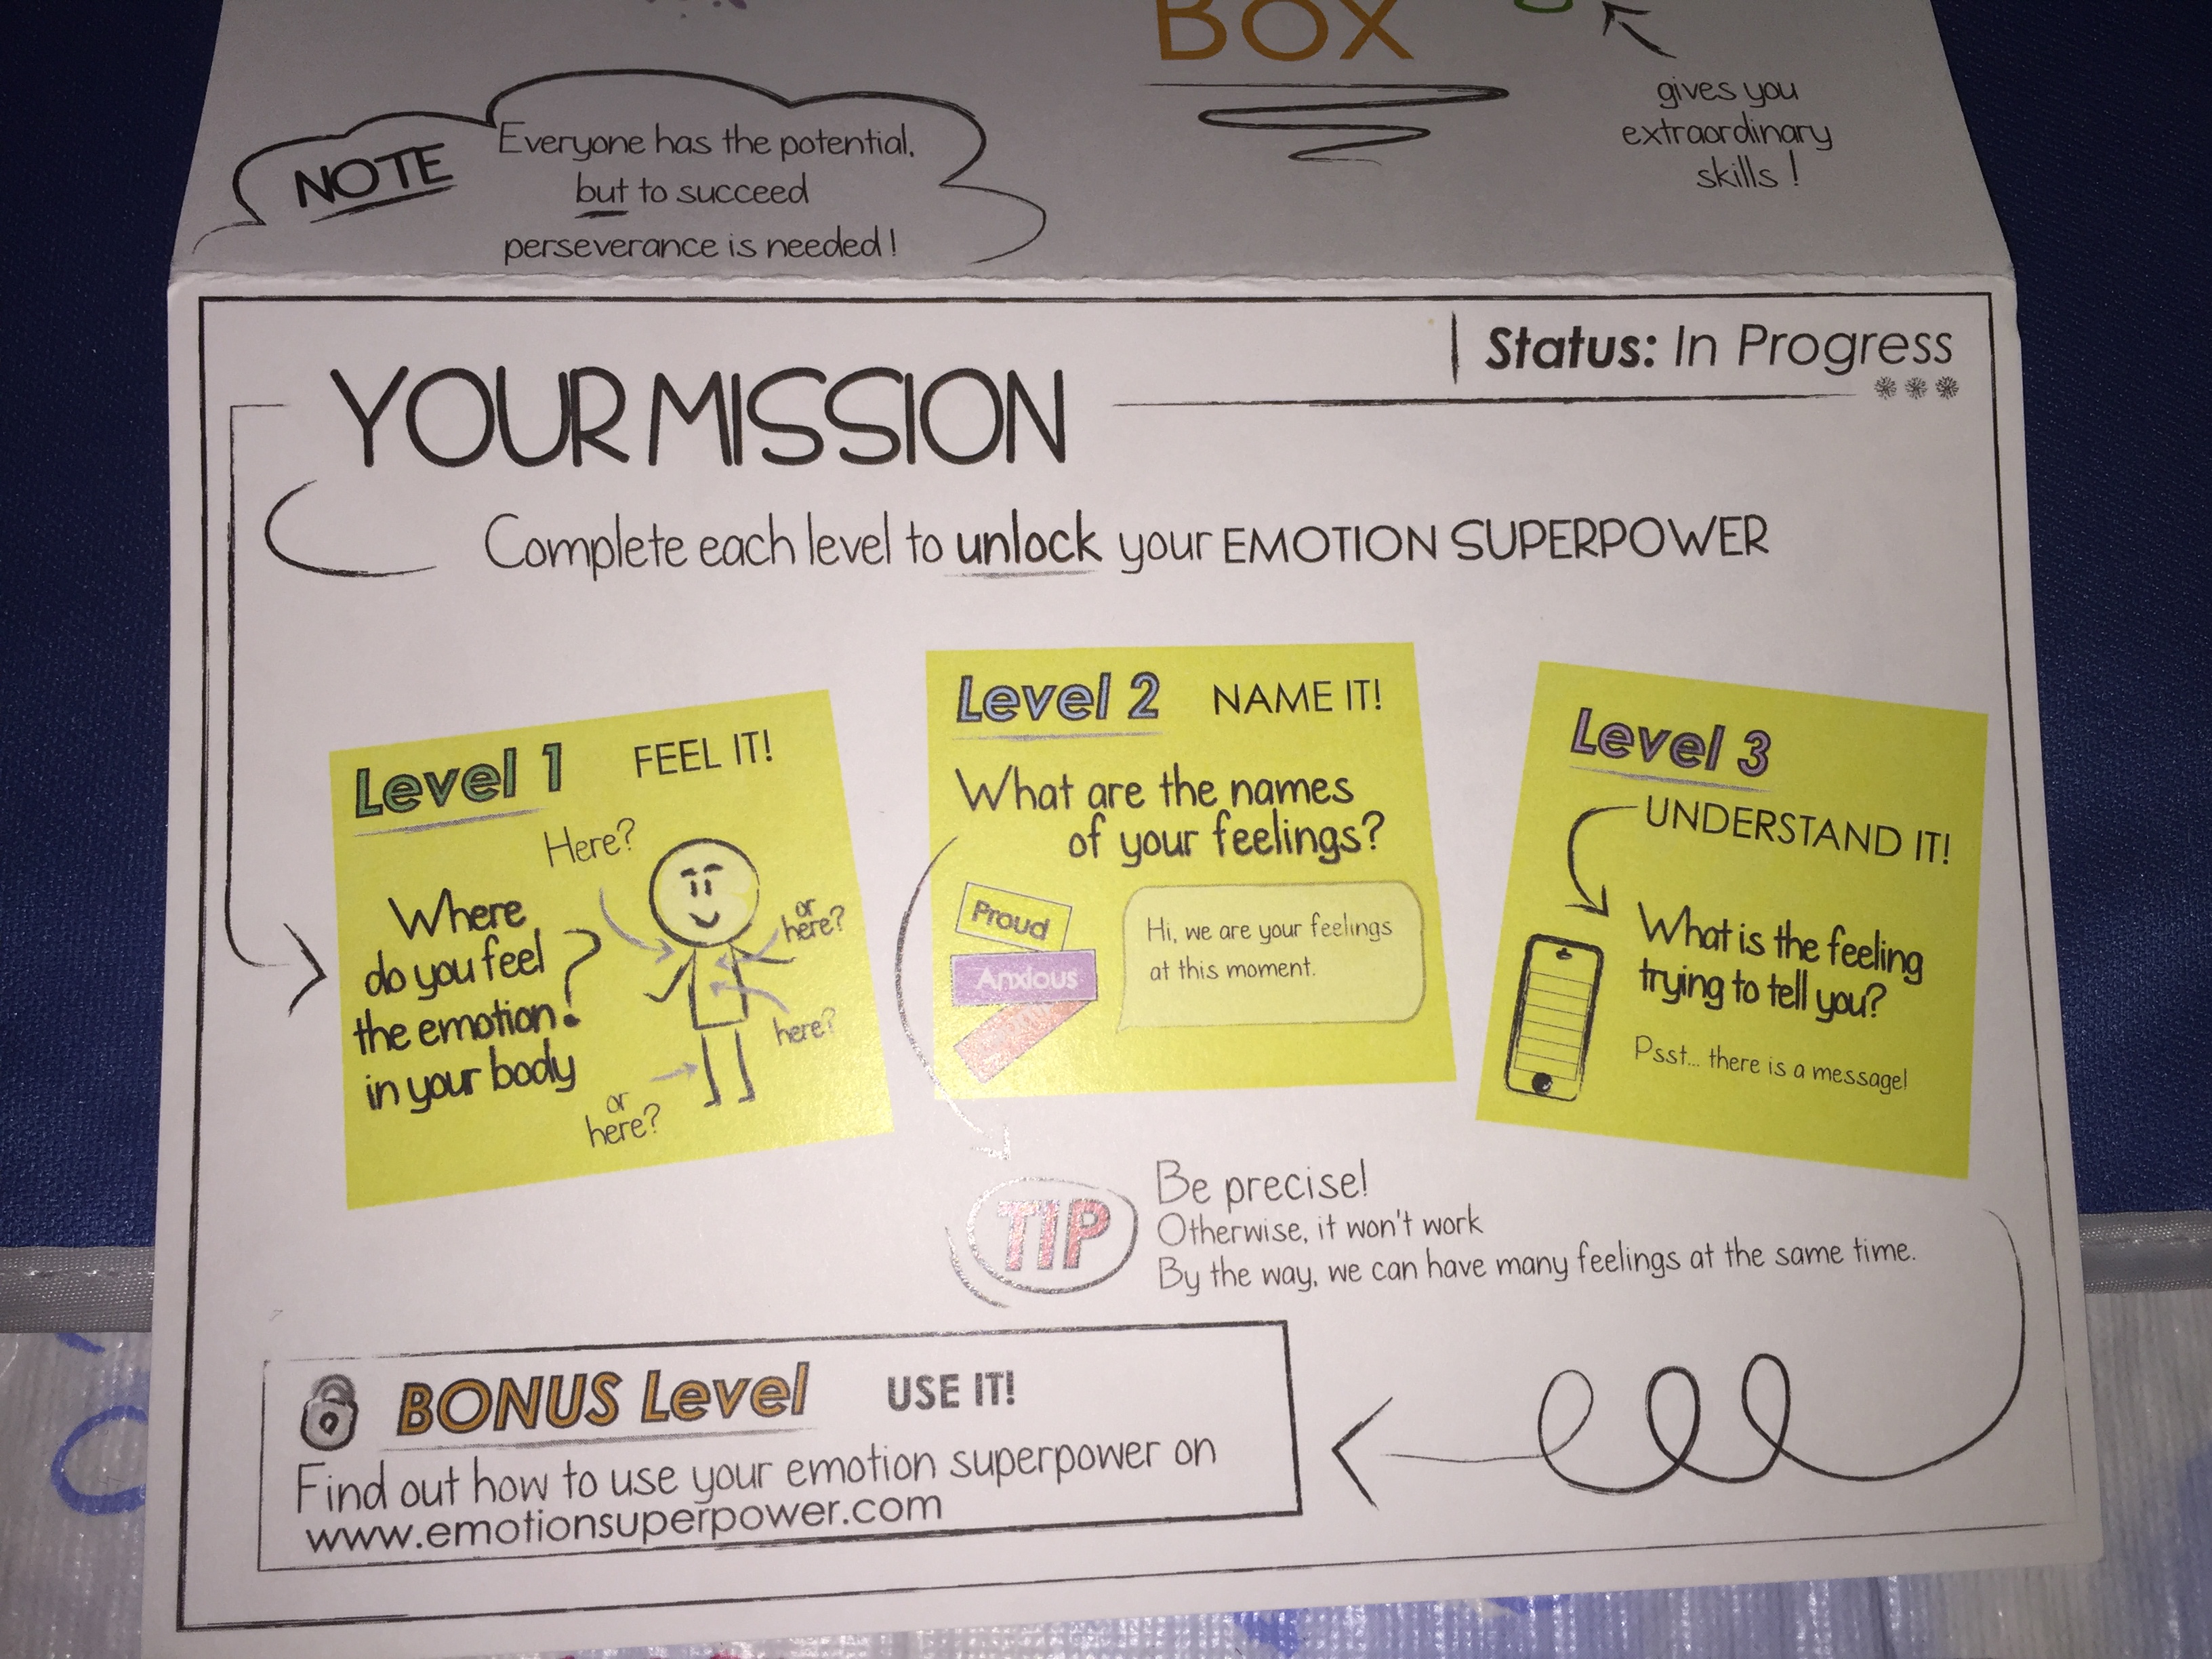 BOX
gives you
extraordinary
skills!
NOTE
Everyone has the potential,
but to succeed
perseverance is needed!
Status: In Progress
YOUR MISSION
Complete each level to unlock your EMOTION SUPERPOWER
Level 1 FEEL IT!
Here?
or
here?
Where
do you feel
the emotion
in your body
?
here?
or
here?
Level 2 NAME IT!
What are the names
of your feelings?
Proud
Anxious
Hi, we are your feelings
at this moment.
Level 3
UNDERSTAND IT!
What is the feeling
trying to tell you?
Psst... there is a message!
TIP
Be precise!
Otherwise, it won't work
By the way, we can have many feelings at the same time.
BONUS Level USE IT!
Find out how to use your emotion superpower on
www.emotionsuperpower.com